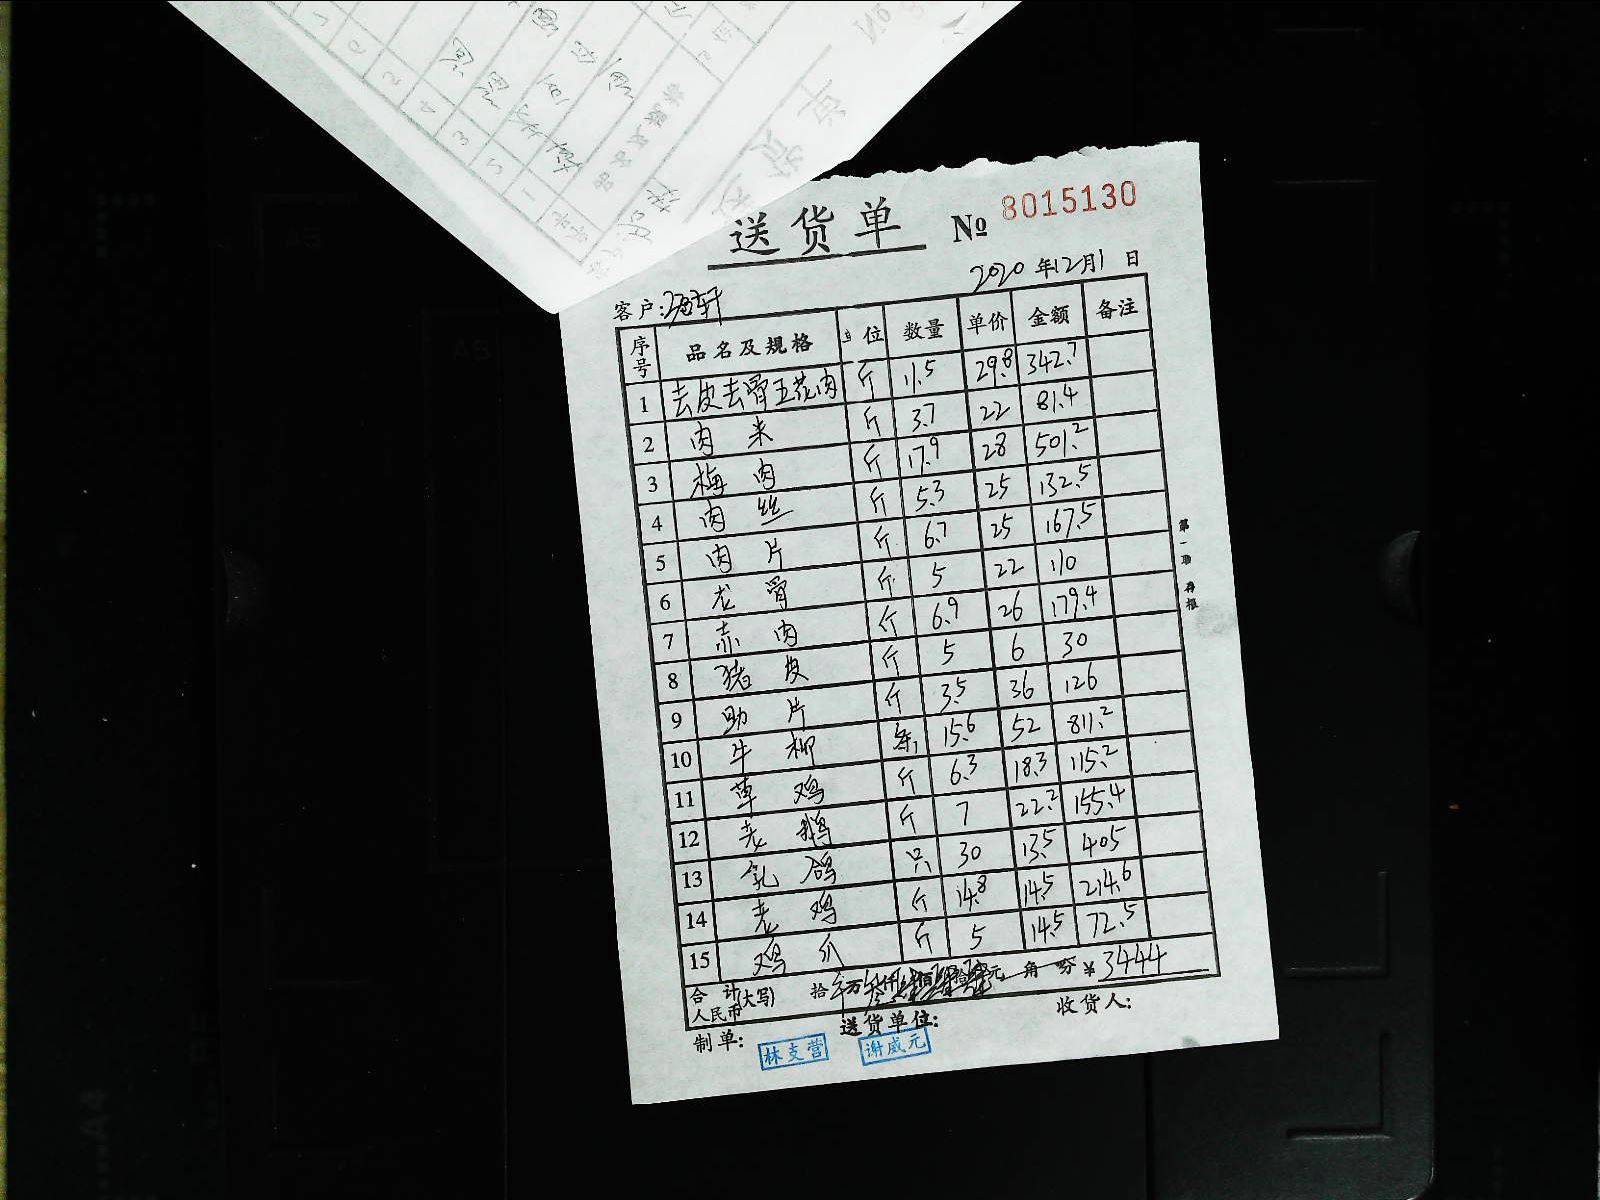 送货单 № 8015130
2020 年 12 月 1 日
客户:
序号 品名及规格 位 数量 单价 金额 备注
1 去皮去骨五花肉 斤 11.5 29.8 342.7
2 肉米 斤 3.7 22 81.4
3 梅肉 斤 17.9 28 501.2
4 肉丝 斤 5.3 25 132.5
5 肉片 斤 6.7 25 167.5
6 龙骨 斤 5 22 110
7 赤肉 斤 6.9 26 179.4
8 猪皮 斤 5 6 30
9 助片 斤 3.5 36 126
10 牛柳 条 15.6 52 811.2
11 草鸡 斤 6.3 18.3 115.2
12 老鹅 斤 7 22.2 155.4
13 乳鸽 只 30 13.5 405
14 老鸡 斤 14.8 14.5 214.6
15 鸡爪 斤 5 14.5 72.5
合计人民币(大写) 拾 万 仟 佰 拾 元 角 分 ¥ 3444
制单: 送货单位: 收货人:
林支营 谢威元
第一联 存根